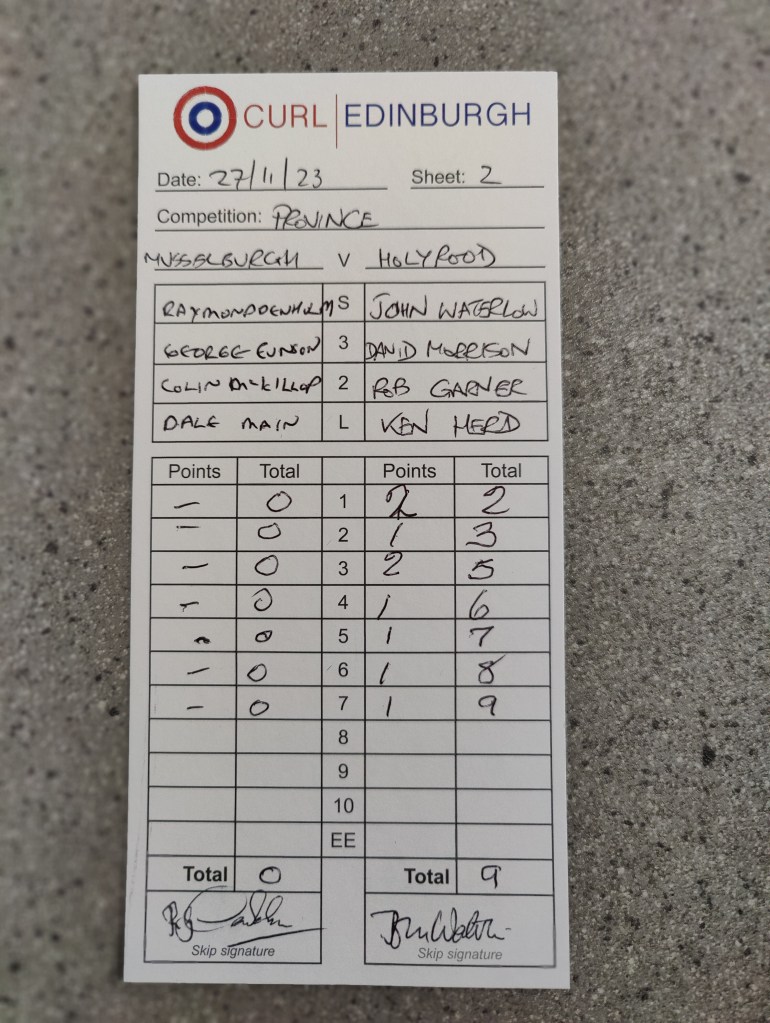 CURL | EDINBURGH
Date: 27/11/23 Sheet: 2
Competition: PROVINCE
MUSSELBURGH V HOLYROOD
RAYMOND DENHOLM S JOHN WATERLOW
GEORGE EUNSON 3 DAVID MORRISON
COLIN McKILLOP 2 ROB GARNER
DALE MAIN L KEN HERD
Points Total Points Total
- 0 1 2 2
- 0 2 1 3
- 0 3 2 5
- 0 4 1 6
- 0 5 1 7
- 0 6 1 8
- 0 7 1 9
8
9
10
EE
Total 0 Total 9
Skip signature Skip signature